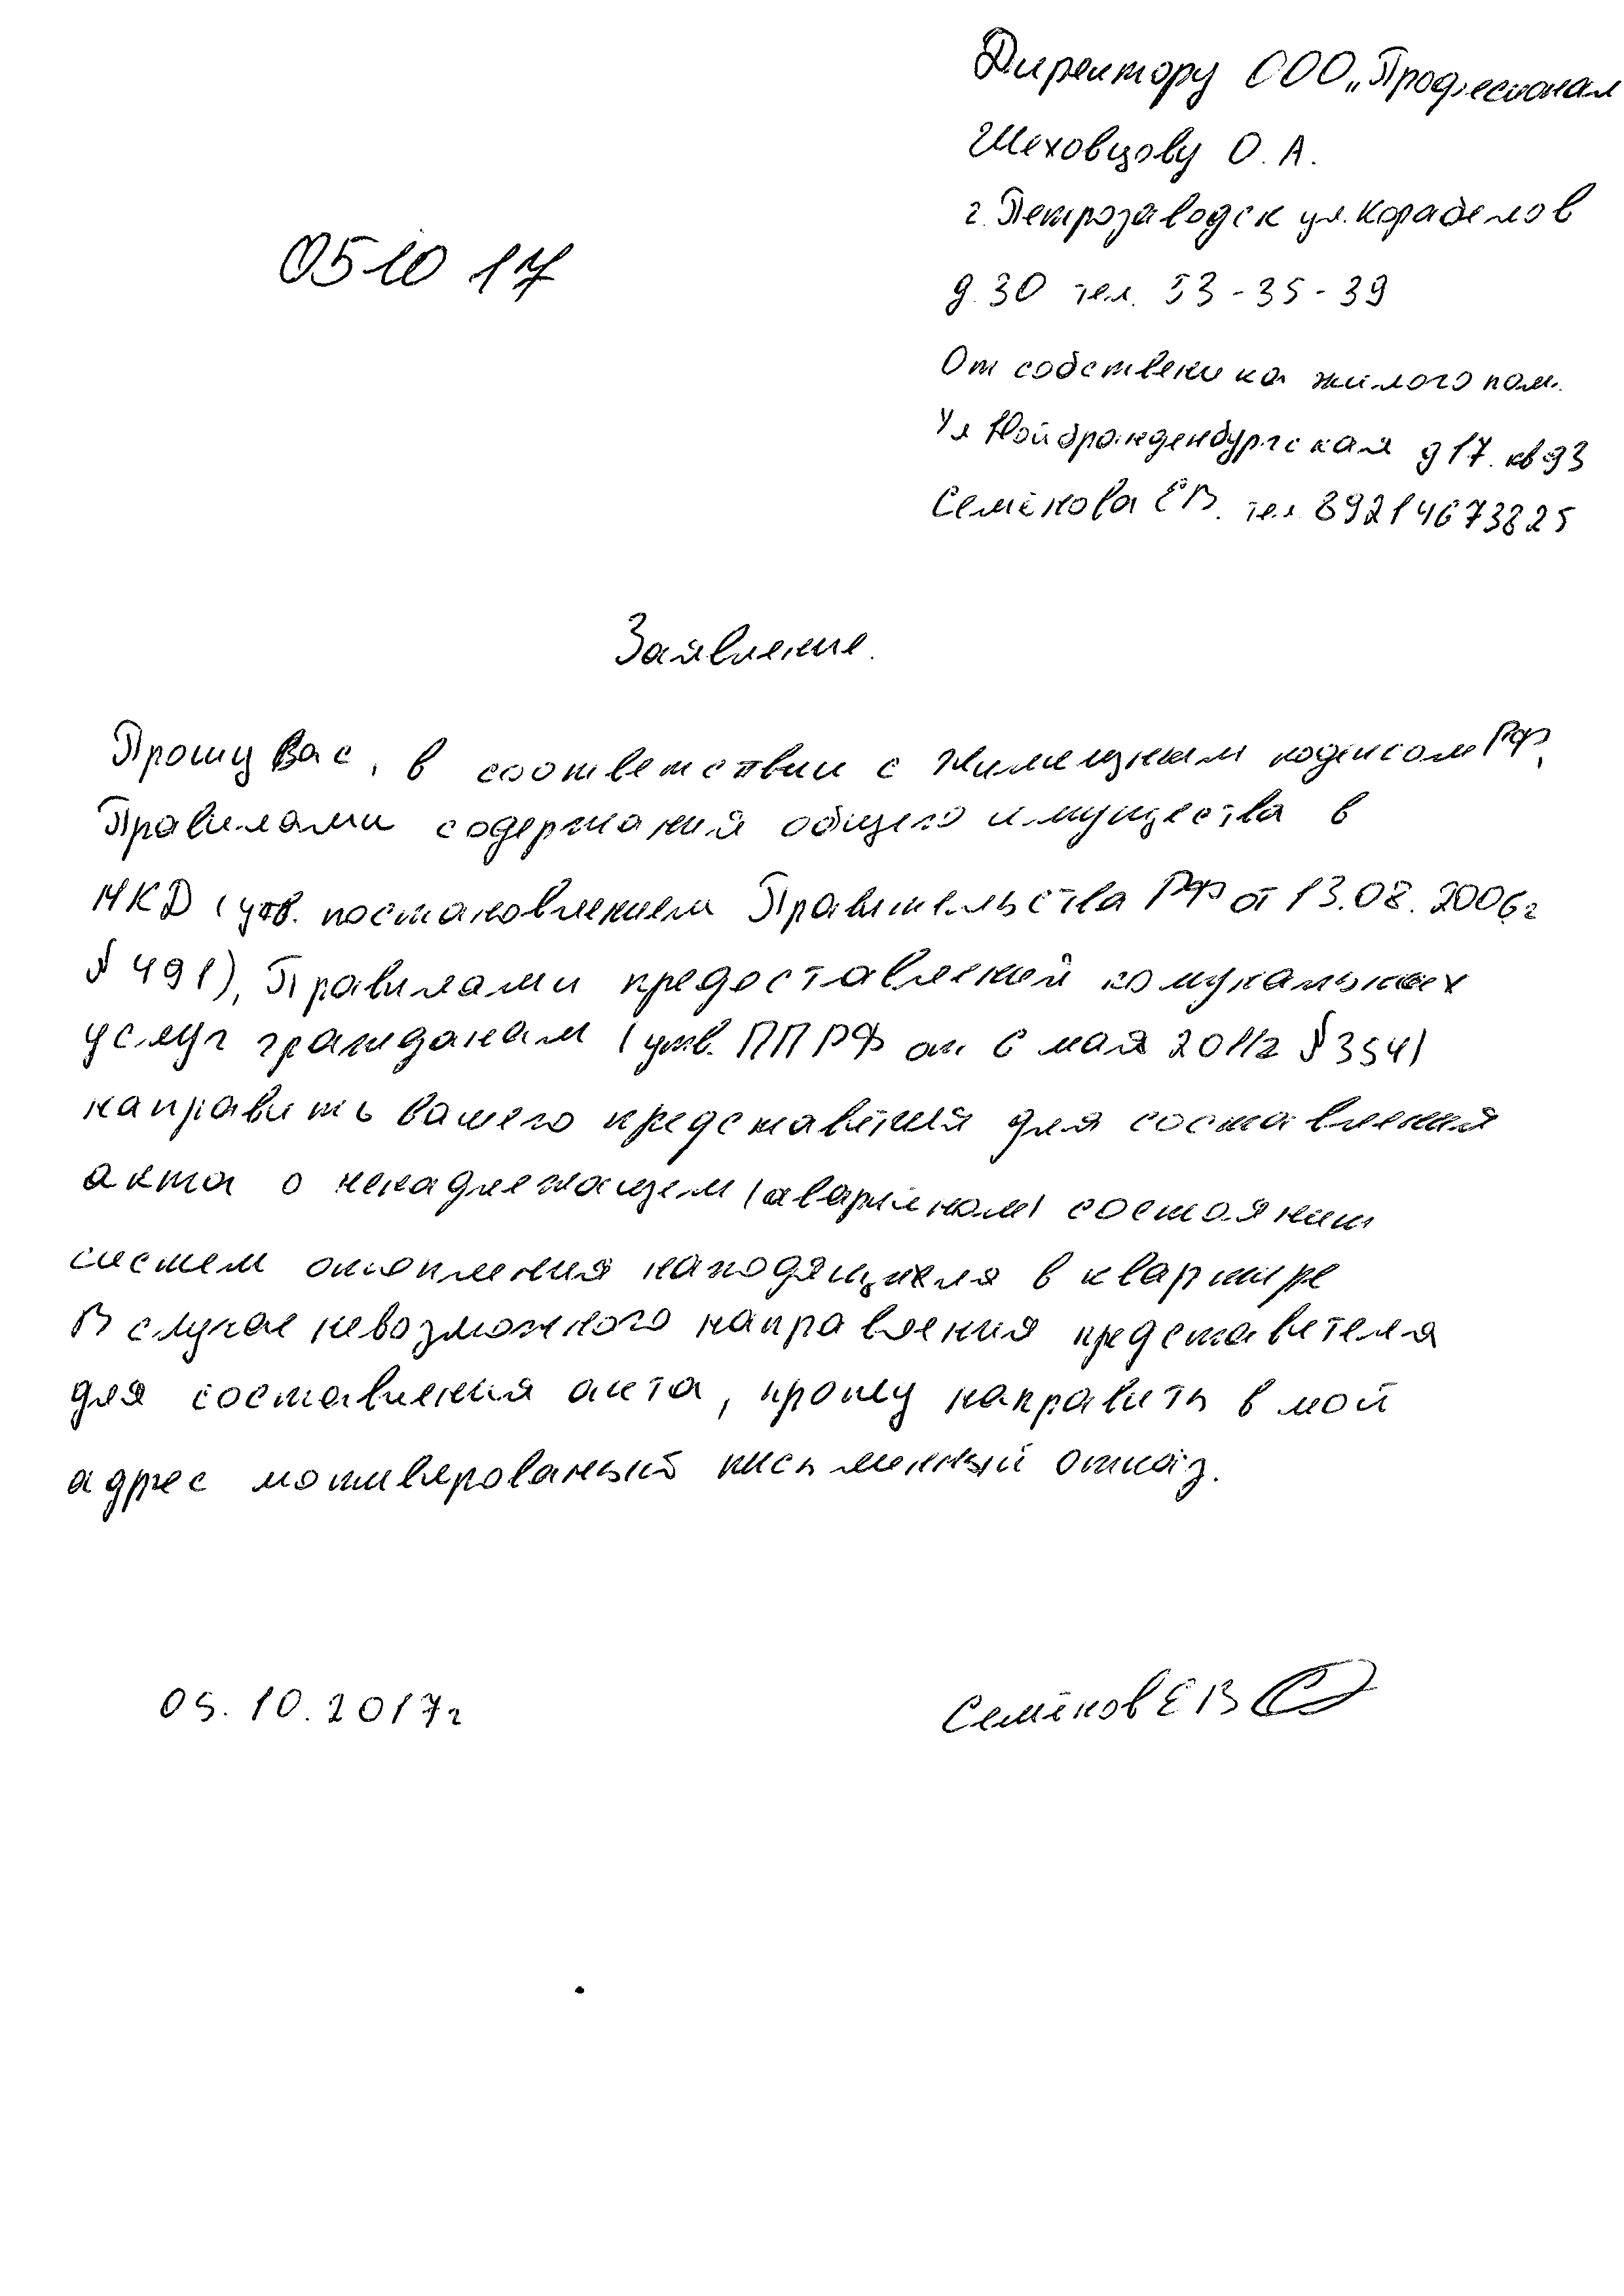 Директору ООО „Професионал
Шеховцову О. А.
г. Петрозаводск ул. Корабелов
05 10 17
д. 30 тел. 53-35-39
От собственика жилого пом.
Ул Нойбранденбургская д 17. кв 93
Семёнова Е В. тел 89214673825
Заявление.
Прошу Вас, в соответствии с Жилищным кодексом РФ,
Правилами содержания общего имущества в
МКД (утв. постановлением Правительства РФ от 13.08.2006г
§ 491), Правилами предоставлений комунальных
услуг гражданам (утв. ППРФ от 6 мая 2011г § 354)
направить вашего представителя для составления
акта о ненадлежащем (аварийном) состоянии
систем отопления находящихся в квартире
В случае невозможного направления представителя
для составления акта, прошу направить в мой
адрес мотивированый письменный отказ.
05.10.2017г
Семёнов Е В